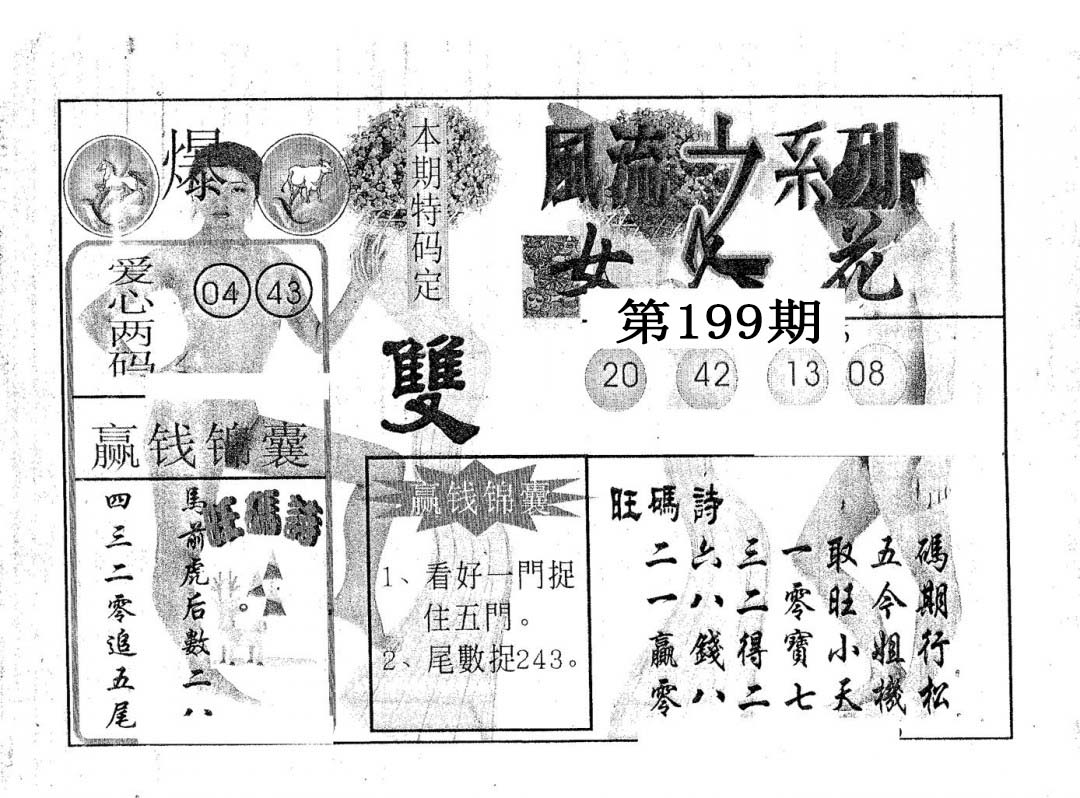 爆
爱心两码
04 43
赢钱锦囊
馬前虎后數二八
四三二零追五尾
旺碼詩
本期特码定
雙
赢钱锦囊
1、看好一門捉
住五門。
2、尾數捉243。
風流之系列
女人花
第199期
20 42 13 08
旺碼詩
碼期行松
五今姐機
取旺小天
一零寶七
三二得二
六八錢八
二一贏零